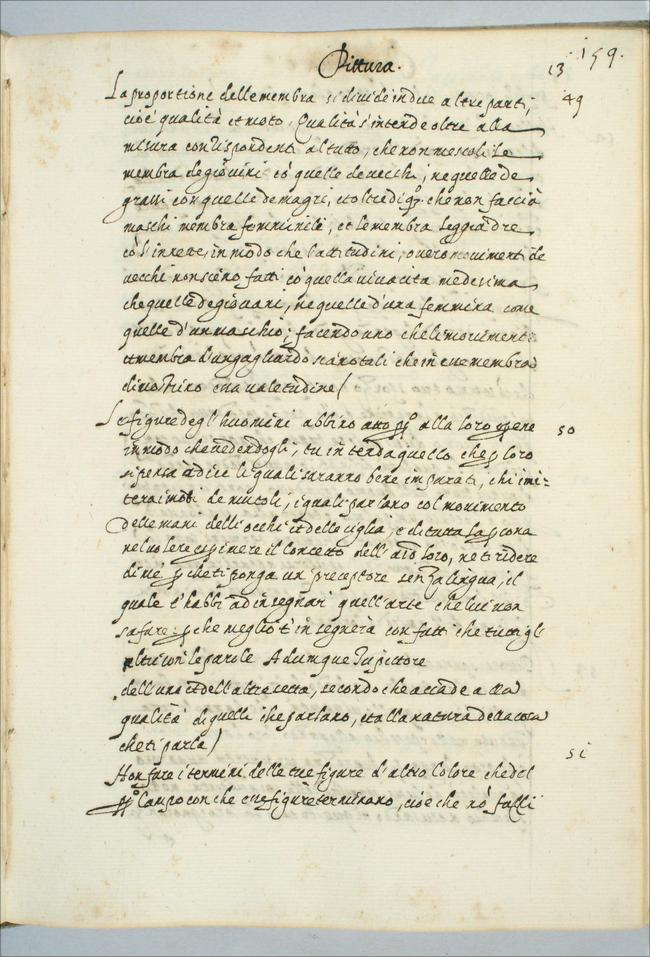 Pittura.
13 159.
La proportione delle membra si divide in due altre parti,
49
cioè qualità et moto. Qualità s'intende oltre alla
misura corrispondente al tutto, che non mescoli le
membra de giovini cō quelle de vecchi, ne quelle de
grassi con quelle de magri, et oltre di qsto. che non faccia
maschi membra femminili, et le membra leggiadre
cō l'inette, in modo che l'attitudini, overo movimenti de
vecchi non sieno fatti cō quella vivacita medesima
che quelle de giovani, ne quelle d'una femmina come
quelle d'un maschio; facendo uno che li movimenti
et membra d'un gagliardo sian tali che in sue membra
dimostrino sua valetudine/
Le figure degl'huomini abbino atto pp.o alla loro opere
50
in modo che vedendogli, tu intenda quello che p loro
si pensa ò dice li quali saranno bene imparati, chi imi=
terai moti de mutoli, i quali parlano col movimento
delle mani delli occhi et delle ciglia, e di tutta la psona
nel volere esprimere il concetto dell'aio loro, ne ti ridere
di mé p che ti ponga un preceptore senza lingua, il
quale t'habbi ad insegnari quell'arte che lui non
sa fare: p che meglio t'insegnera con fatti che tutti gli
altri con le parole Adumque tu pittore
dell'una et dell'altra setta, secondo che accade alla
qualità di quelli che parlano, et alla natura della cosa
che ti parla/
51
Non fare i termini delle tue figure d'altro colore che del
pp.o campo con che esse figure terminano, cioè che nō facci